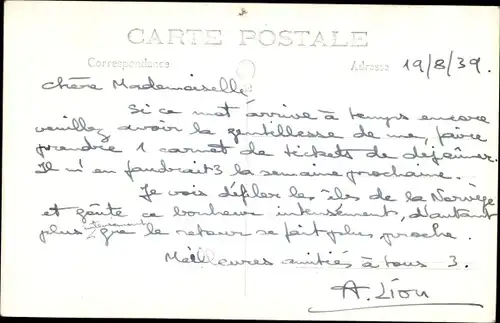 CARTE POSTALE
Correspondance
Adresse
19/8/39.
Chère Mademoiselle
Si ce mot arrive à temps encore
veuillez avoir la gentillesse de me faire
prendre 1 carnet de tickets de déjeuner.
Il m'en faudrait 3 la semaine prochaine.
Je vois défiler les îles de la Norvège
et goûte ce bonheur intensément, d'autant
plus que le retour se fait plus proche.
Meilleures amitiés à tous 3.
A. Lion